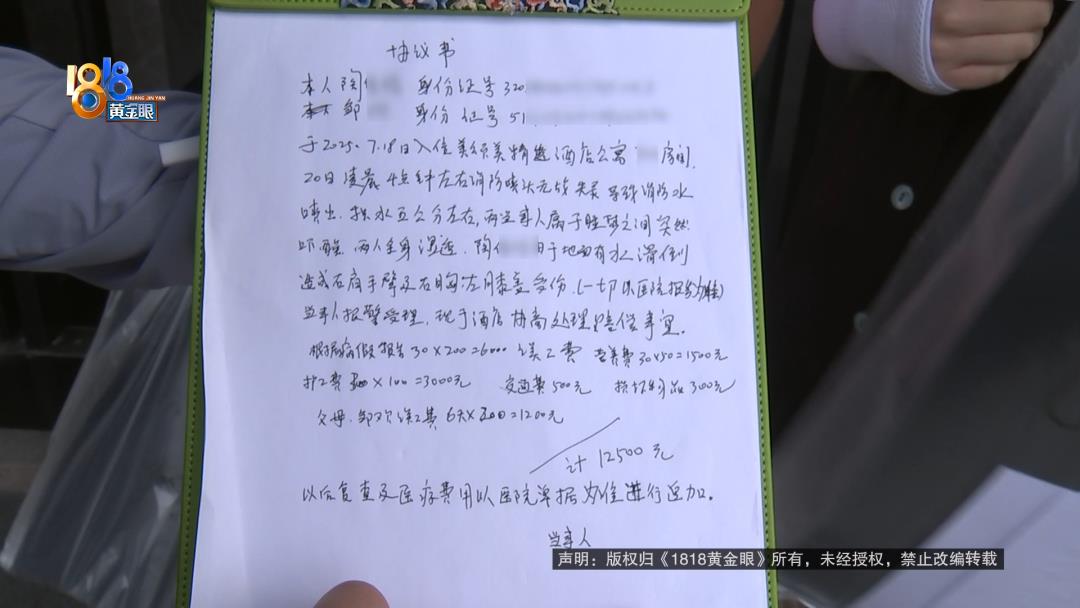 协议书
1818
HUANG JIN YAN
黄金眼
本人陶 身份证号320
本人邹 身份证号51
于2025.7.18日入住美须美精选酒店公寓 房间.
20日凌晨4点钟左右消防喷头无故失灵导致消防水
喷出.积水五公分左右,两当事人属于睡梦之间突然
吓醒.两人全身湿透.陶 由于地面有水滑倒
造成右肩手臂及右胸左膝盖受伤.(一切以医院报告为准)
当事人报警受理,现于酒店协商处理赔偿事宜.
根据病假报告30×200=6000误工费 营养费30×50=1500元
护工费30×100=3000元 交通费500元 损坏物品300元
父母.邹 误工费6天×200=1200元
计12500元
以后复查及医疗费用以医院单据为准进行追加.
当事人
声明:版权归《1818黄金眼》所有,未经授权,禁止改编转载